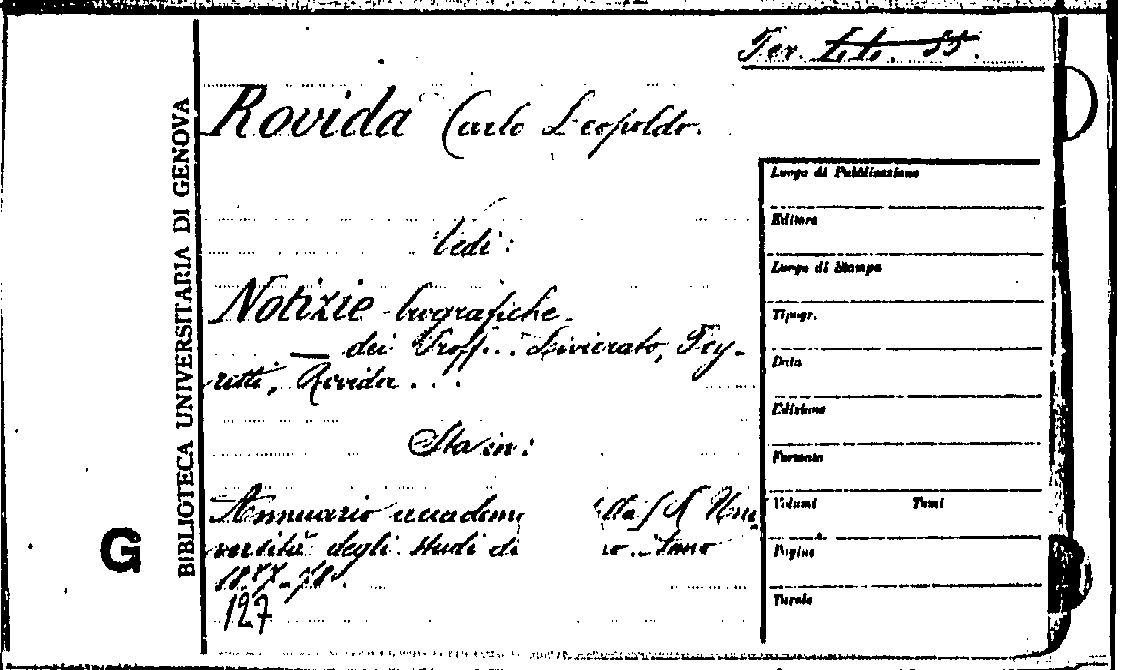 Per. Z.Z. 55.
Rovida Carlo Leopoldo.
Vedi:
Notizie biografiche
— dei Proff... Livierato, Pey-
retti, Rovida...
Sta in:
Annuario accadem lla R. Uni
versità degli studi di no. Anno
1877-78.
127
BIBLIOTECA UNIVERSITARIA DI GENOVA
G
Luogo di Pubblicazione
Editore
Luogo di Stampa
Tipogr.
Data
Edizione
Formato
Volumi Tomi
Pagine
Tavole